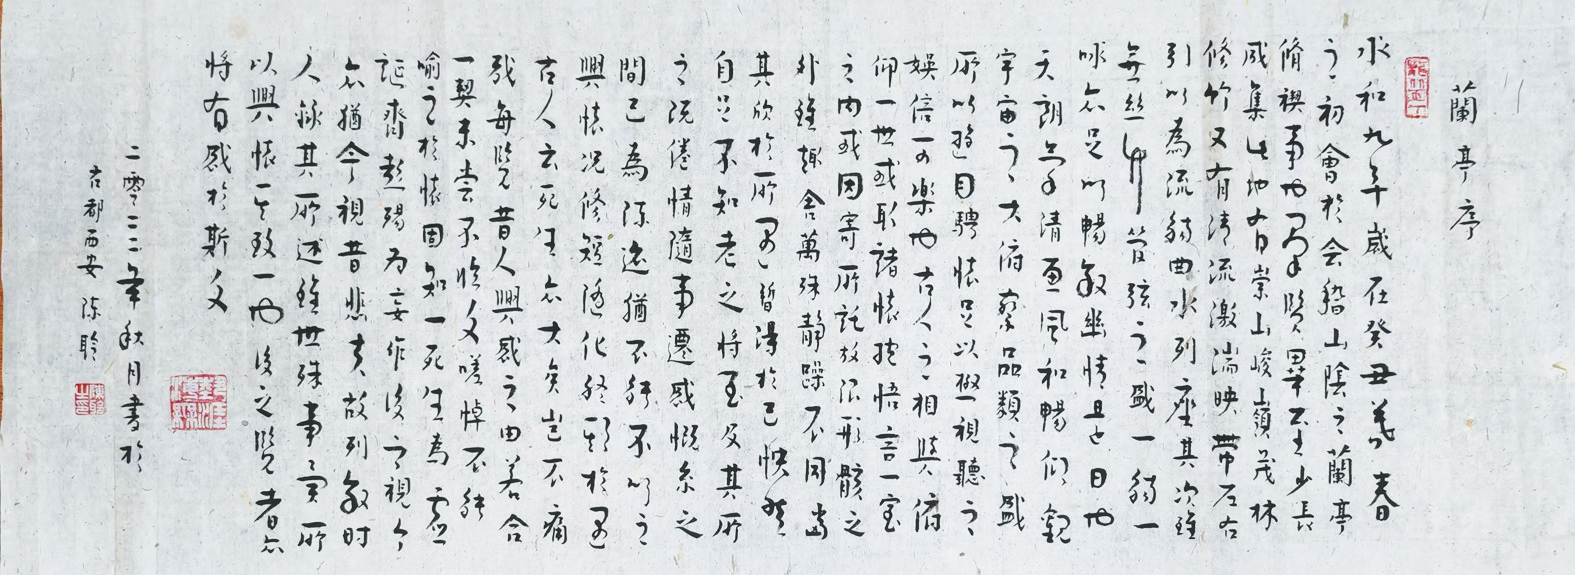 蘭亭序
永和九年歲在癸丑暮春
之初會於会稽山陰之蘭亭
脩禊事也羣賢畢至少長
咸集此地有崇山峻嶺茂林
修竹又有清流激湍映帶左右
引以為流觴曲水列座其次雖
無丝竹管弦之盛一觴一
咏亦足以暢叙幽情是日也
天朗气清惠風和暢仰觀
宇宙之大俯察品類之盛
所以遊目騁懷足以極視聽之
娱信可樂也古人之相與俯
仰一世或取諸懷抱悟言一室
之内或因寄所託放浪形骸之
外雖趣舍萬殊静躁不同當
其欣於所遇暫得於己怏然
自足不知老之将至及其所
之既倦情隨事遷感慨系之
間已為陈迹猶不能不以之
興懷况修短随化终期於盡
古人云死生亦大矣岂不痛
哉每覧昔人興感之由若合
一契未尝不临文嗟悼不能
喻之於懷固知一死生為虚
誕齊彭殤为妄作後之視今
亦猶今視昔悲夫故列叙时
人錄其所述雖世殊事異所
以興懷其致一也後之覽者亦
将有感於斯文
二零二二年秋月書於
古都西安 陈聆